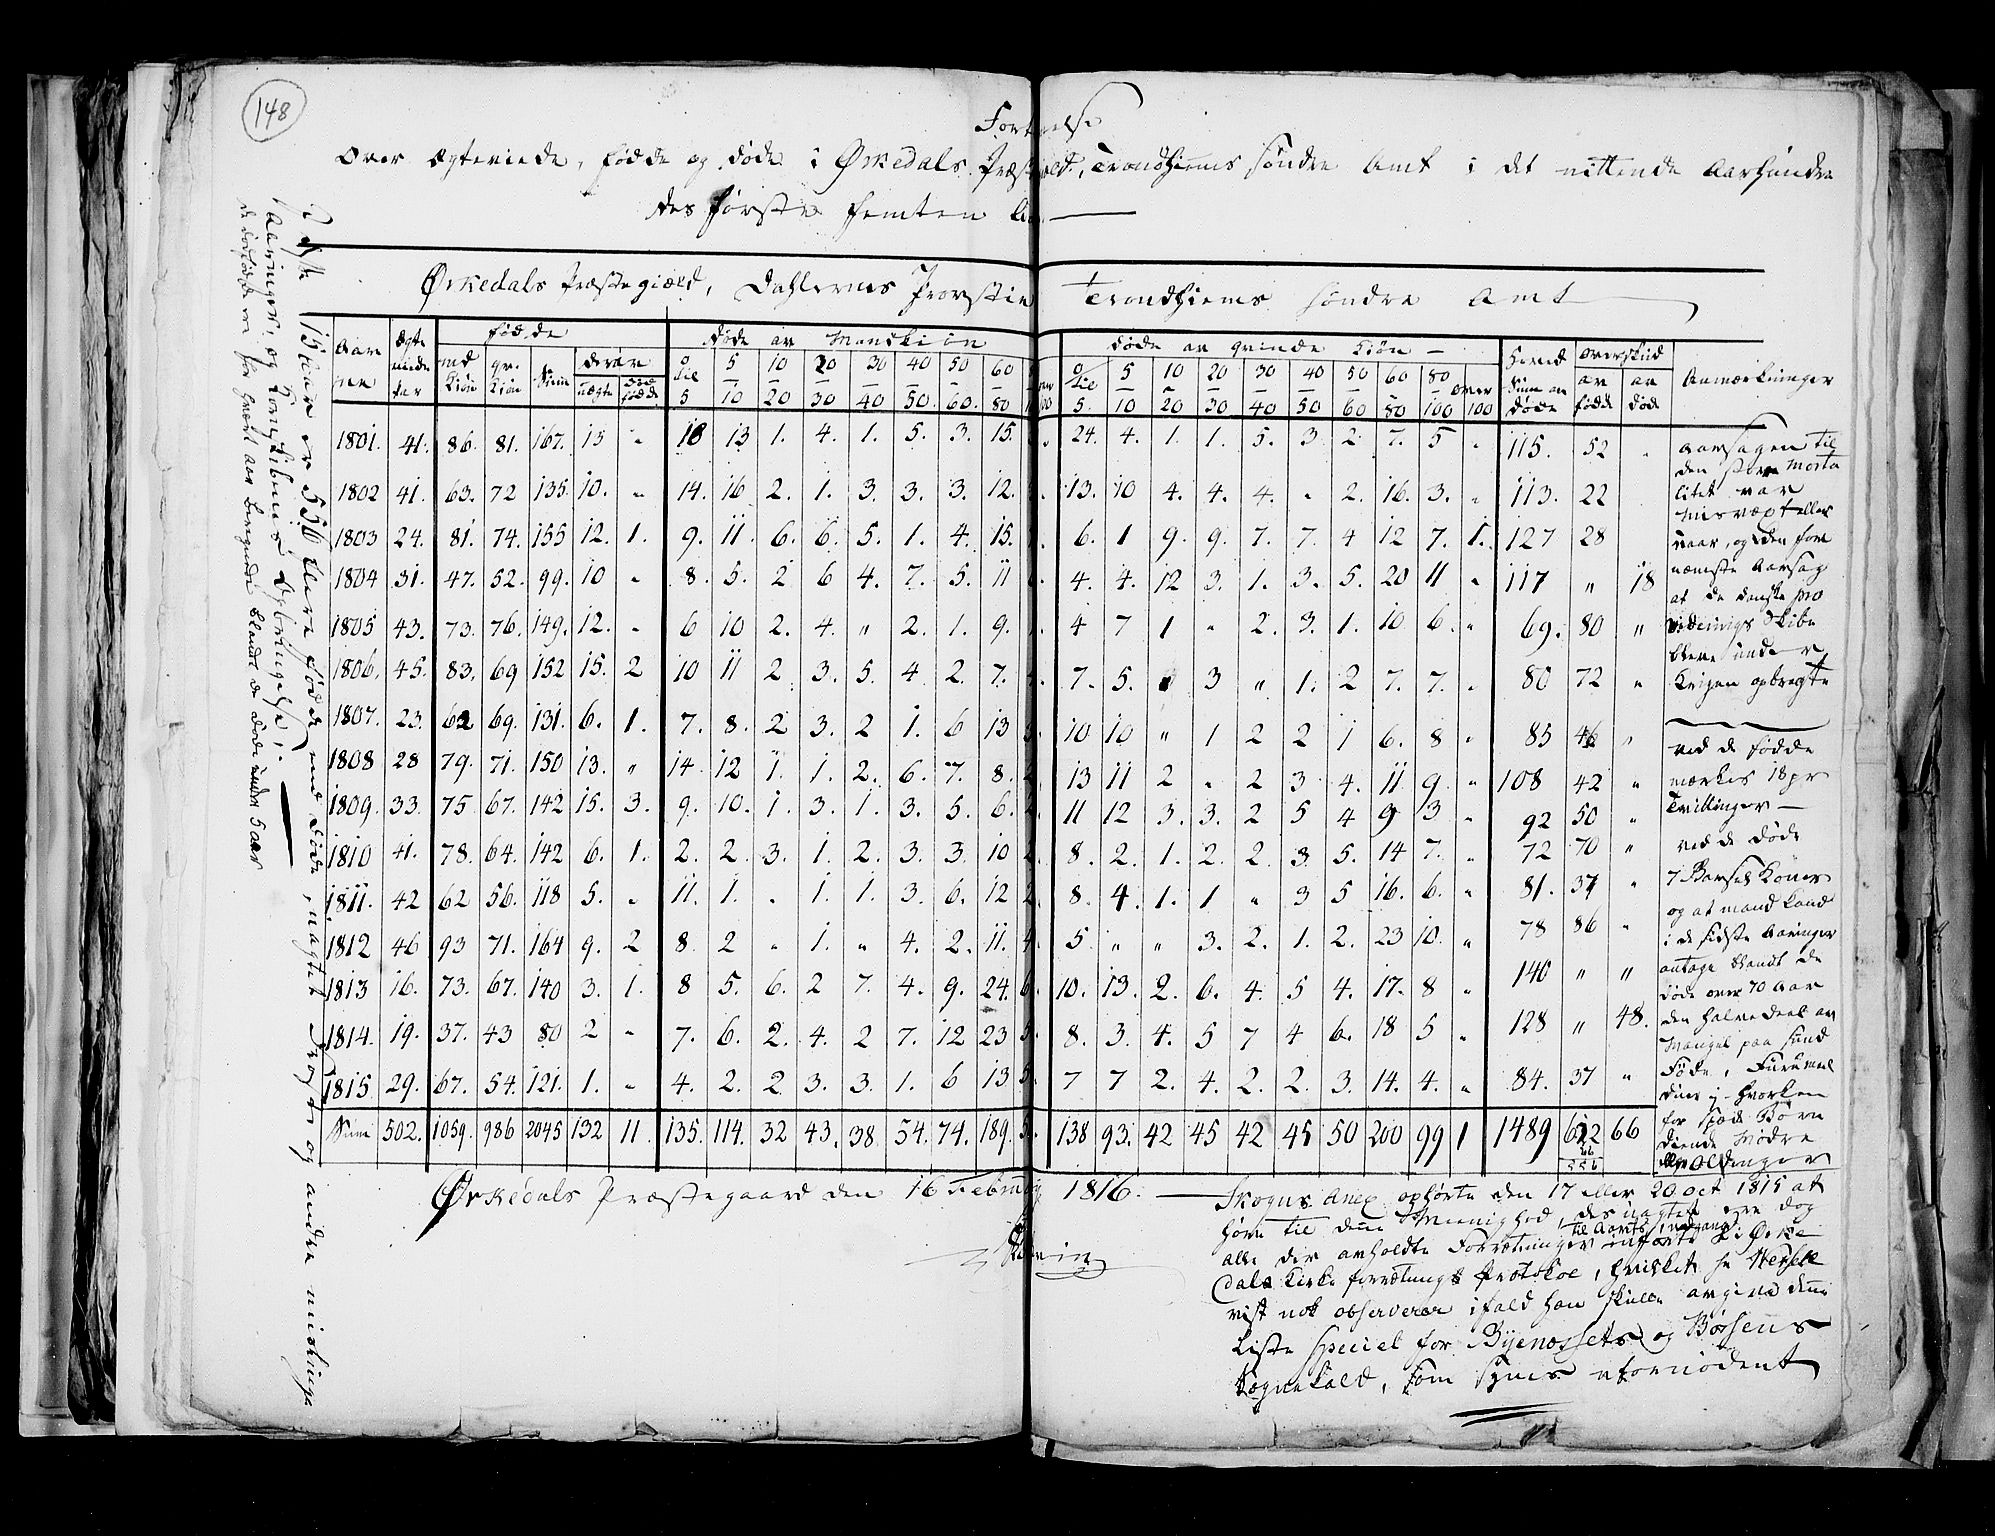 148
Fortegnelse
Over Ægteviede, fødde og døde i Ørkedals Præstegield, Trondhiems søndre Amt i det nittende Aarhundre
des første femten Aar
Ørkedals Præstegiæld, Dahlernes Provstie Trondhiems søndre Amt
Aar Ægte fødde Døde av Mandkiøn døde av qvinde kiøn hoved overskud Anmærkninger
1801. 41. 86. 81. 167. 13 " 18 13 1. 4. 1. 5. 3. 15. " 24. 4. 1. 1. 5. 3 2. 7. 5 " 115. 52 "
1802 41. 63. 72 135. 10. " 14. 16 2. 1. 3. 3. 3. 12. 13. 10 4. 4. 4. " 2. 16. 3. " 113. 22
1803 24. 81. 74. 155 12. 1. 9. 11. 6. 6. 5. 1. 4. 15. 6. 1 9. 9. 7. 7. 4 12 7. 1. 127 28
1804 31. 47. 52. 99. 10 " 8. 5. 2 6 4. 7. 5. 11 4. 4. 12 3. 1. 3. 5. 20 11 " 117 " 18
1805 43. 73. 76. 149. 12. " 6 10 2. 4. " 2. 1. 9. 4 7 1 " 2. 3. 1. 10 6. " 69. 80 "
1806. 45. 83. 69 152 15. 2 10 11 2 3. 5. 4 2. 7. 7. 5. 3 " 1. 2 7. 7. " 80 72 "
1807. 23. 62 69. 131. 6. 1. 7. 8. 2 3. 2 1. 6 13 10 10 " 1 2 2 1 6. 8 " 85 46 "
1808 28 79. 71. 150 13. " 14. 12 1. 1. 2. 6. 7. 8. 13 11 2 " 2 3 4. 11 9. " 108 42 "
1809. 33. 75 67. 142 15. 3. 9. 10. 1 3. 1. 3. 5. 6. 11 12 3. 3. 2 5 4 9 3 " 92 50 "
1810 41. 78. 64. 142 6. 1. 2. 2. 3. 1. 2. 3. 3. 10 8. 2. 1. 2. 2 3. 5. 14 7. " 72 70 "
1811. 42 62 56. 118 5. " 11. 1. " 1. 1. 3 6. 12 8. 4. 1. 1 " 3 5 16. 6. " 81. 37 "
1812 46 93 71. 164 9. 2 8. 2 " 1. " 4. 2. 11. 5 " " 3. 2. 1. 2. 23 10. " 78 86 "
1813 16. 73. 67. 140 3. 1. 8 5. 6. 2 7. 4. 9. 24. 6 10. 13. 2. 6. 4. 5 4. 17. 8 " 140 " "
1814. 19. 37. 43 80 2 " 7. 6. 2. 4. 2 7. 12 23 8. 3. 4. 5 7 4 6. 18 5 " 128 " 48.
1815 29. 67. 54. 121. 1. " 4. 2. 2 3. 3. 1. 6 13 7 7 2. 4. 2. 2. 3. 14. 4. " 84. 37 "
Sum 502. 1059. 986 2045 132 11. 135. 114. 32 43. 38. 54. 74. 189. 138 93. 42 45 42 45 50 200 99 1 1489 622 66
66
556
Aarsagen til
den store Morta
litet var
Misvæxt eller
uaar, og den for
næmste Aarsag
at de danske pro
viderings Skibe
bleve under
Krigen opbragte
ved de fødde
mærkes 18 pr
Tvillinger
ved de døde
7 Barsel Koner
og at mand kand
i de sidste Aaringer
antage blandt de
døde over 70 Aar
den halve Deel av
Mangel paa sund
Føde,
for spæde Børn
diende Mødre
eller Oldinger
Ørkedals Præstegaard den 16 Februarij 1816.
Skogns Anex ophørte den 17 eller 20 oct 1815 at
høre til denne Meenighed, des uagtet ere dog
til Aarets Udgang
alle der avholdte Forretninger indførte i Ørke
dals Kirke forretnings Protokoe, hvilket hr
vist nok observerer ifald han skulle avgive denne
Liste speciel for Byenessets og Børsens
Sognekald, som synes ufornødent
15 Aar er 556 flere fødde end døde, uagtet Krigen og andre
Aaringer, og Kornskibenes Opbringelse!
de dødfødde ere for hvert aar beregnede blandt de døde under 5 aar